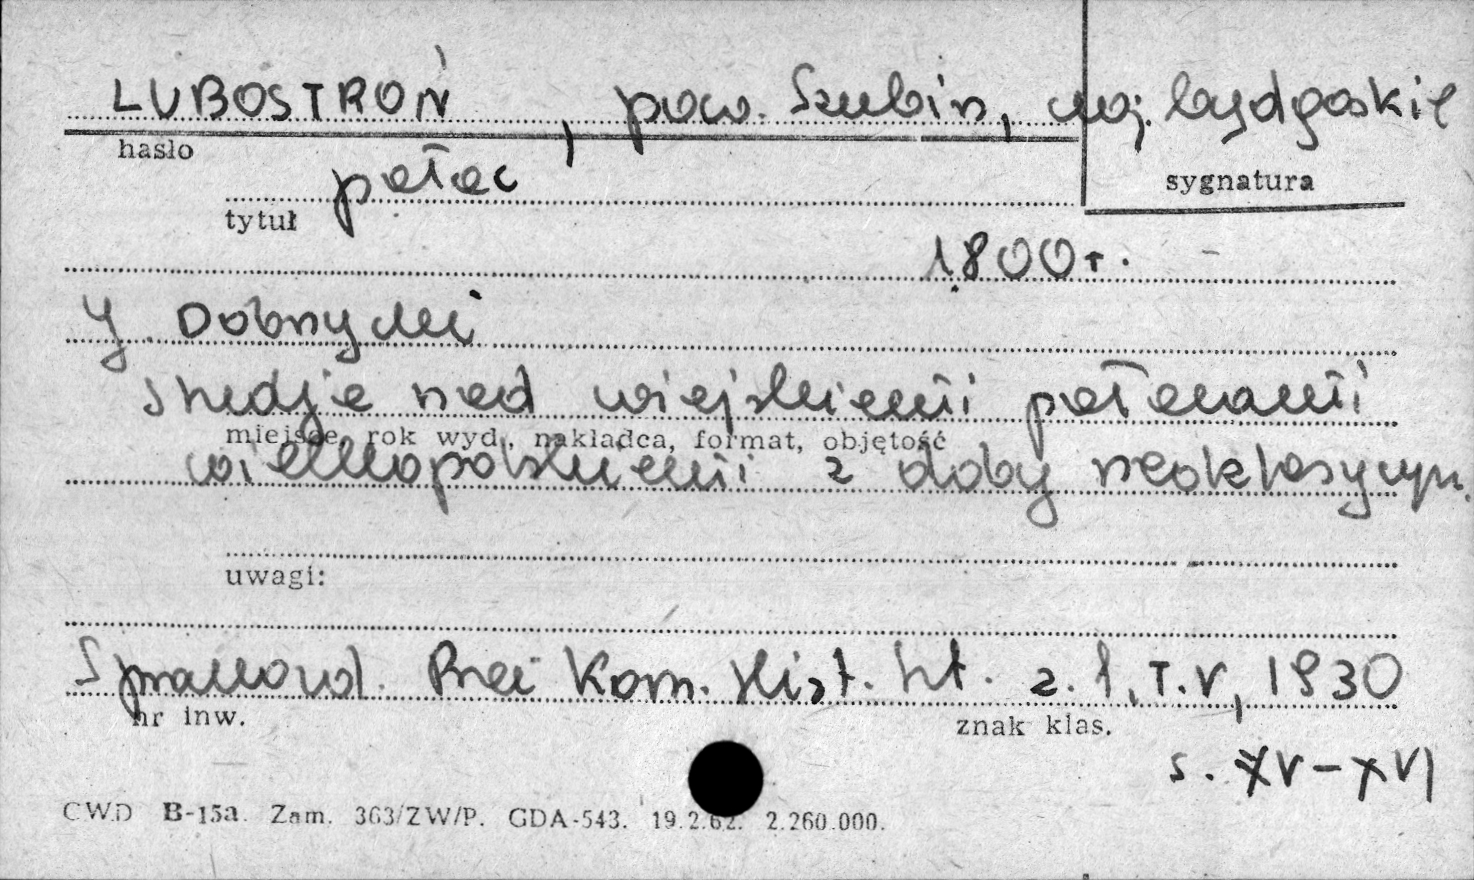 LUBOSTROŃ, pow. Szubin, woj. bydgoskie
hasło
sygnatura
pałac
tytuł
1800 r.
J. Dobrzycki
Studje nad wiejskiemi pałacami
miejsce, rok wyd., nakładca, format, objętość
wielkopolskiemi z doby neoklasycyzm.
uwagi:
Sprawozd. Prac Kom. Hist. Szt. z. 1, T. V, 1930
nr inw.
znak klas.
s. XV-XVI
CWD B-15a. Zam. 363/ZW/P. GDA-543. 19.2.62. 2.260.000.